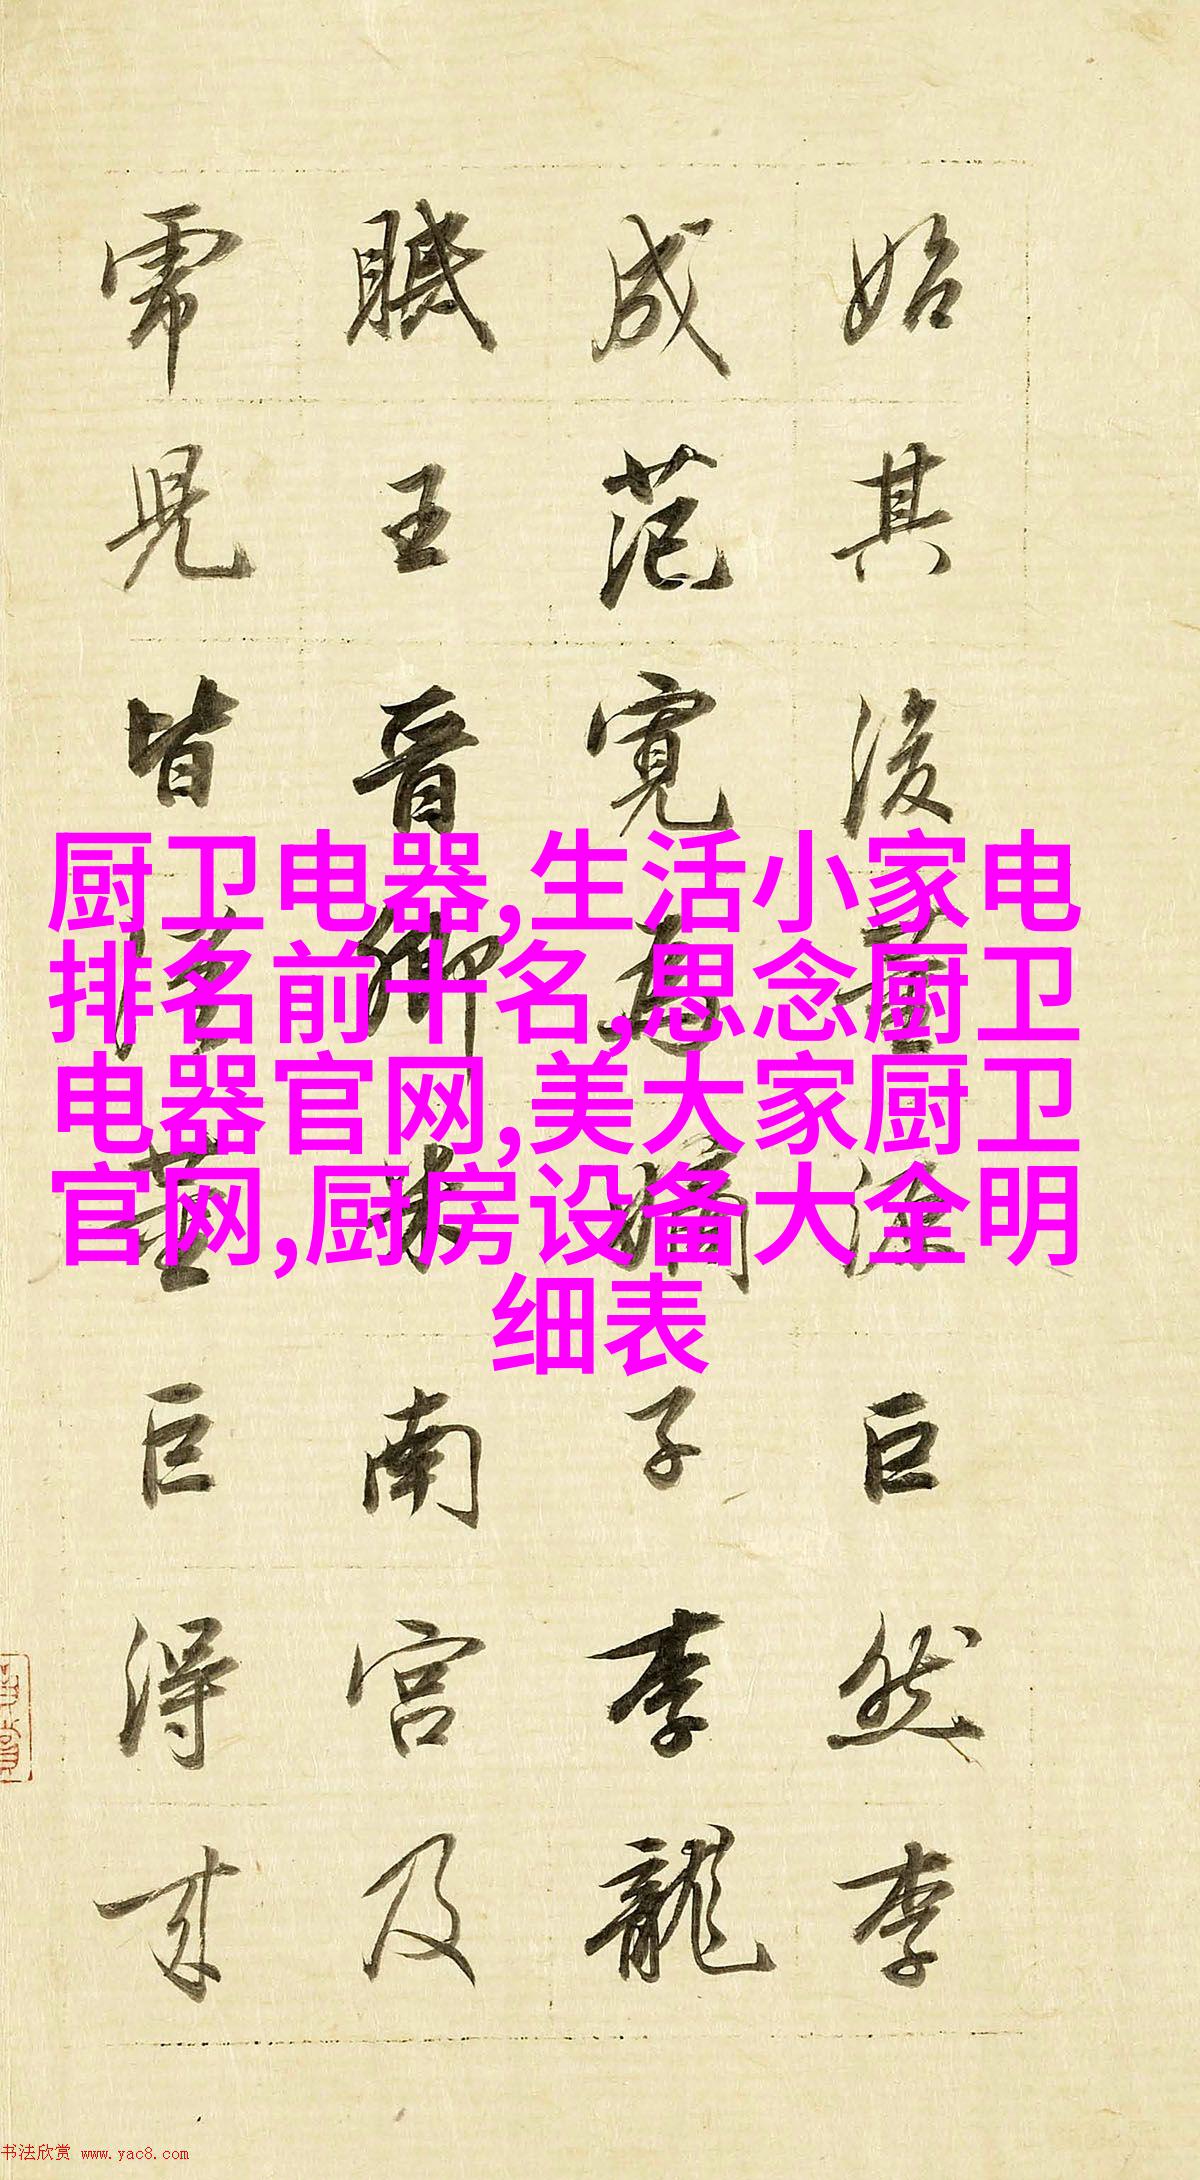 始其後董源巨然李
成范寬為嫡子李龍
眠王晋卿米南宫及
虎兒皆從董巨得来
厨卫电器,生活小家电
排名前十名,思念厨卫
电器官网,美大家厨卫
官网,厨房设备大全明
细表
书法欣赏 www.yac8.com